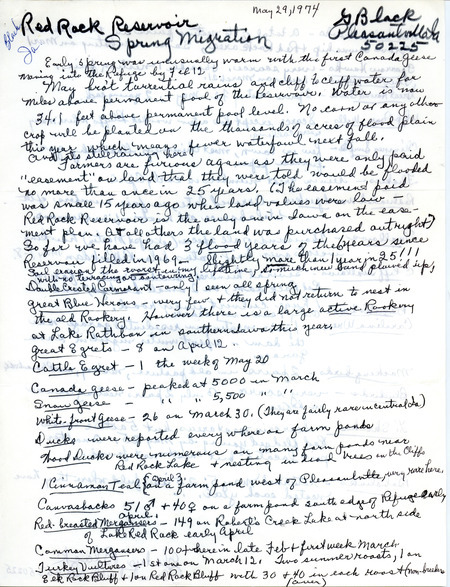 May 29, 1974
Red Rock Reservoir
G Black
Spring Migration
Pleasantville Ia
50225
Early spring was unusually warm with the first Canada Geese
moving into the Refuge by Feb 12
May brot torrential rains and cliff to cliff water for
miles above permanent pool of the Reservoir. Water is now
34.1 feet above permanent pool level. No corn or any other
crop will be planted on the thousands of acres of flood plain
this year which means fewer waterfowl next fall.
And its still raining here
Farmers are furious again as they were only paid
"easement" on land that they were told would be flooded
no more than once in 25 years. (The easement paid
was small 15 years ago when land values were low —
Red Rock Reservoir is the only one in Iowa on the ease-
ment plan. At all others the land was purchased outright)
So far we have had 3 flood years of the years since
Reservoir filled in 1969 — Slightly more than 1 year in 25!!!
Soil erosion the worst in my lifetime, so much new land plowed up,
with no terracing or contouring.
Double Crested Cormorant - only 1 seen all spring
Great Blue Herons - very few & they did not return to nest in
the old Rookery. However there is a large active Rookery
at Lake Rathbun in southern Iowa this year.
Great Egrets - 8 on April 12
Cattle Egret - 1 the week of May 20
Canada geese - peaked at 5000 in March
Snow Geese - " " 5,500 " "
White-front Geese - 26 on March 30. (They are fairly rare in central Ia)
Ducks were reported everywhere on farm ponds
Wood Ducks were numerous on many farm ponds near
Red Rock Lake & nesting in dead trees on the Cliffs
April 3
1 Cinnamon Teal on a farm pond west of Pleasantville, very rare here.
Canvasbacks 51♂ + 40♀ on a farm pond south edge of Refuge early
April.
Red-breasted Mergansers - 149 on Robert's Creek Lake at north side
of Lake Red Rock early April
Common Mergansers - 100+ here in late Feb & first week March
Turkey Vultures - 1st one on March 12. Two summer roosts, 1 on
Elk Rock Bluff & 1 on Red Rock Bluff with 30 & 40 in each roost